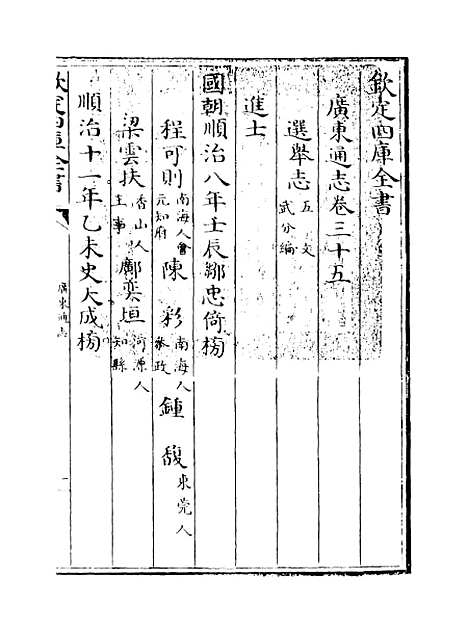 欽定四庫全書
廣東通志卷三十五
選舉志五 文武分編
進士
國朝順治八年壬辰鄒忠倚榜
程可則 南海人會元知府 陳彩 南海人參政 鍾馥 東莞人
梁雲扶 香山人主事 鄺奕垣 河源人知縣
順治十一年乙未史大成榜
欽定四庫全書
廣東通志
一